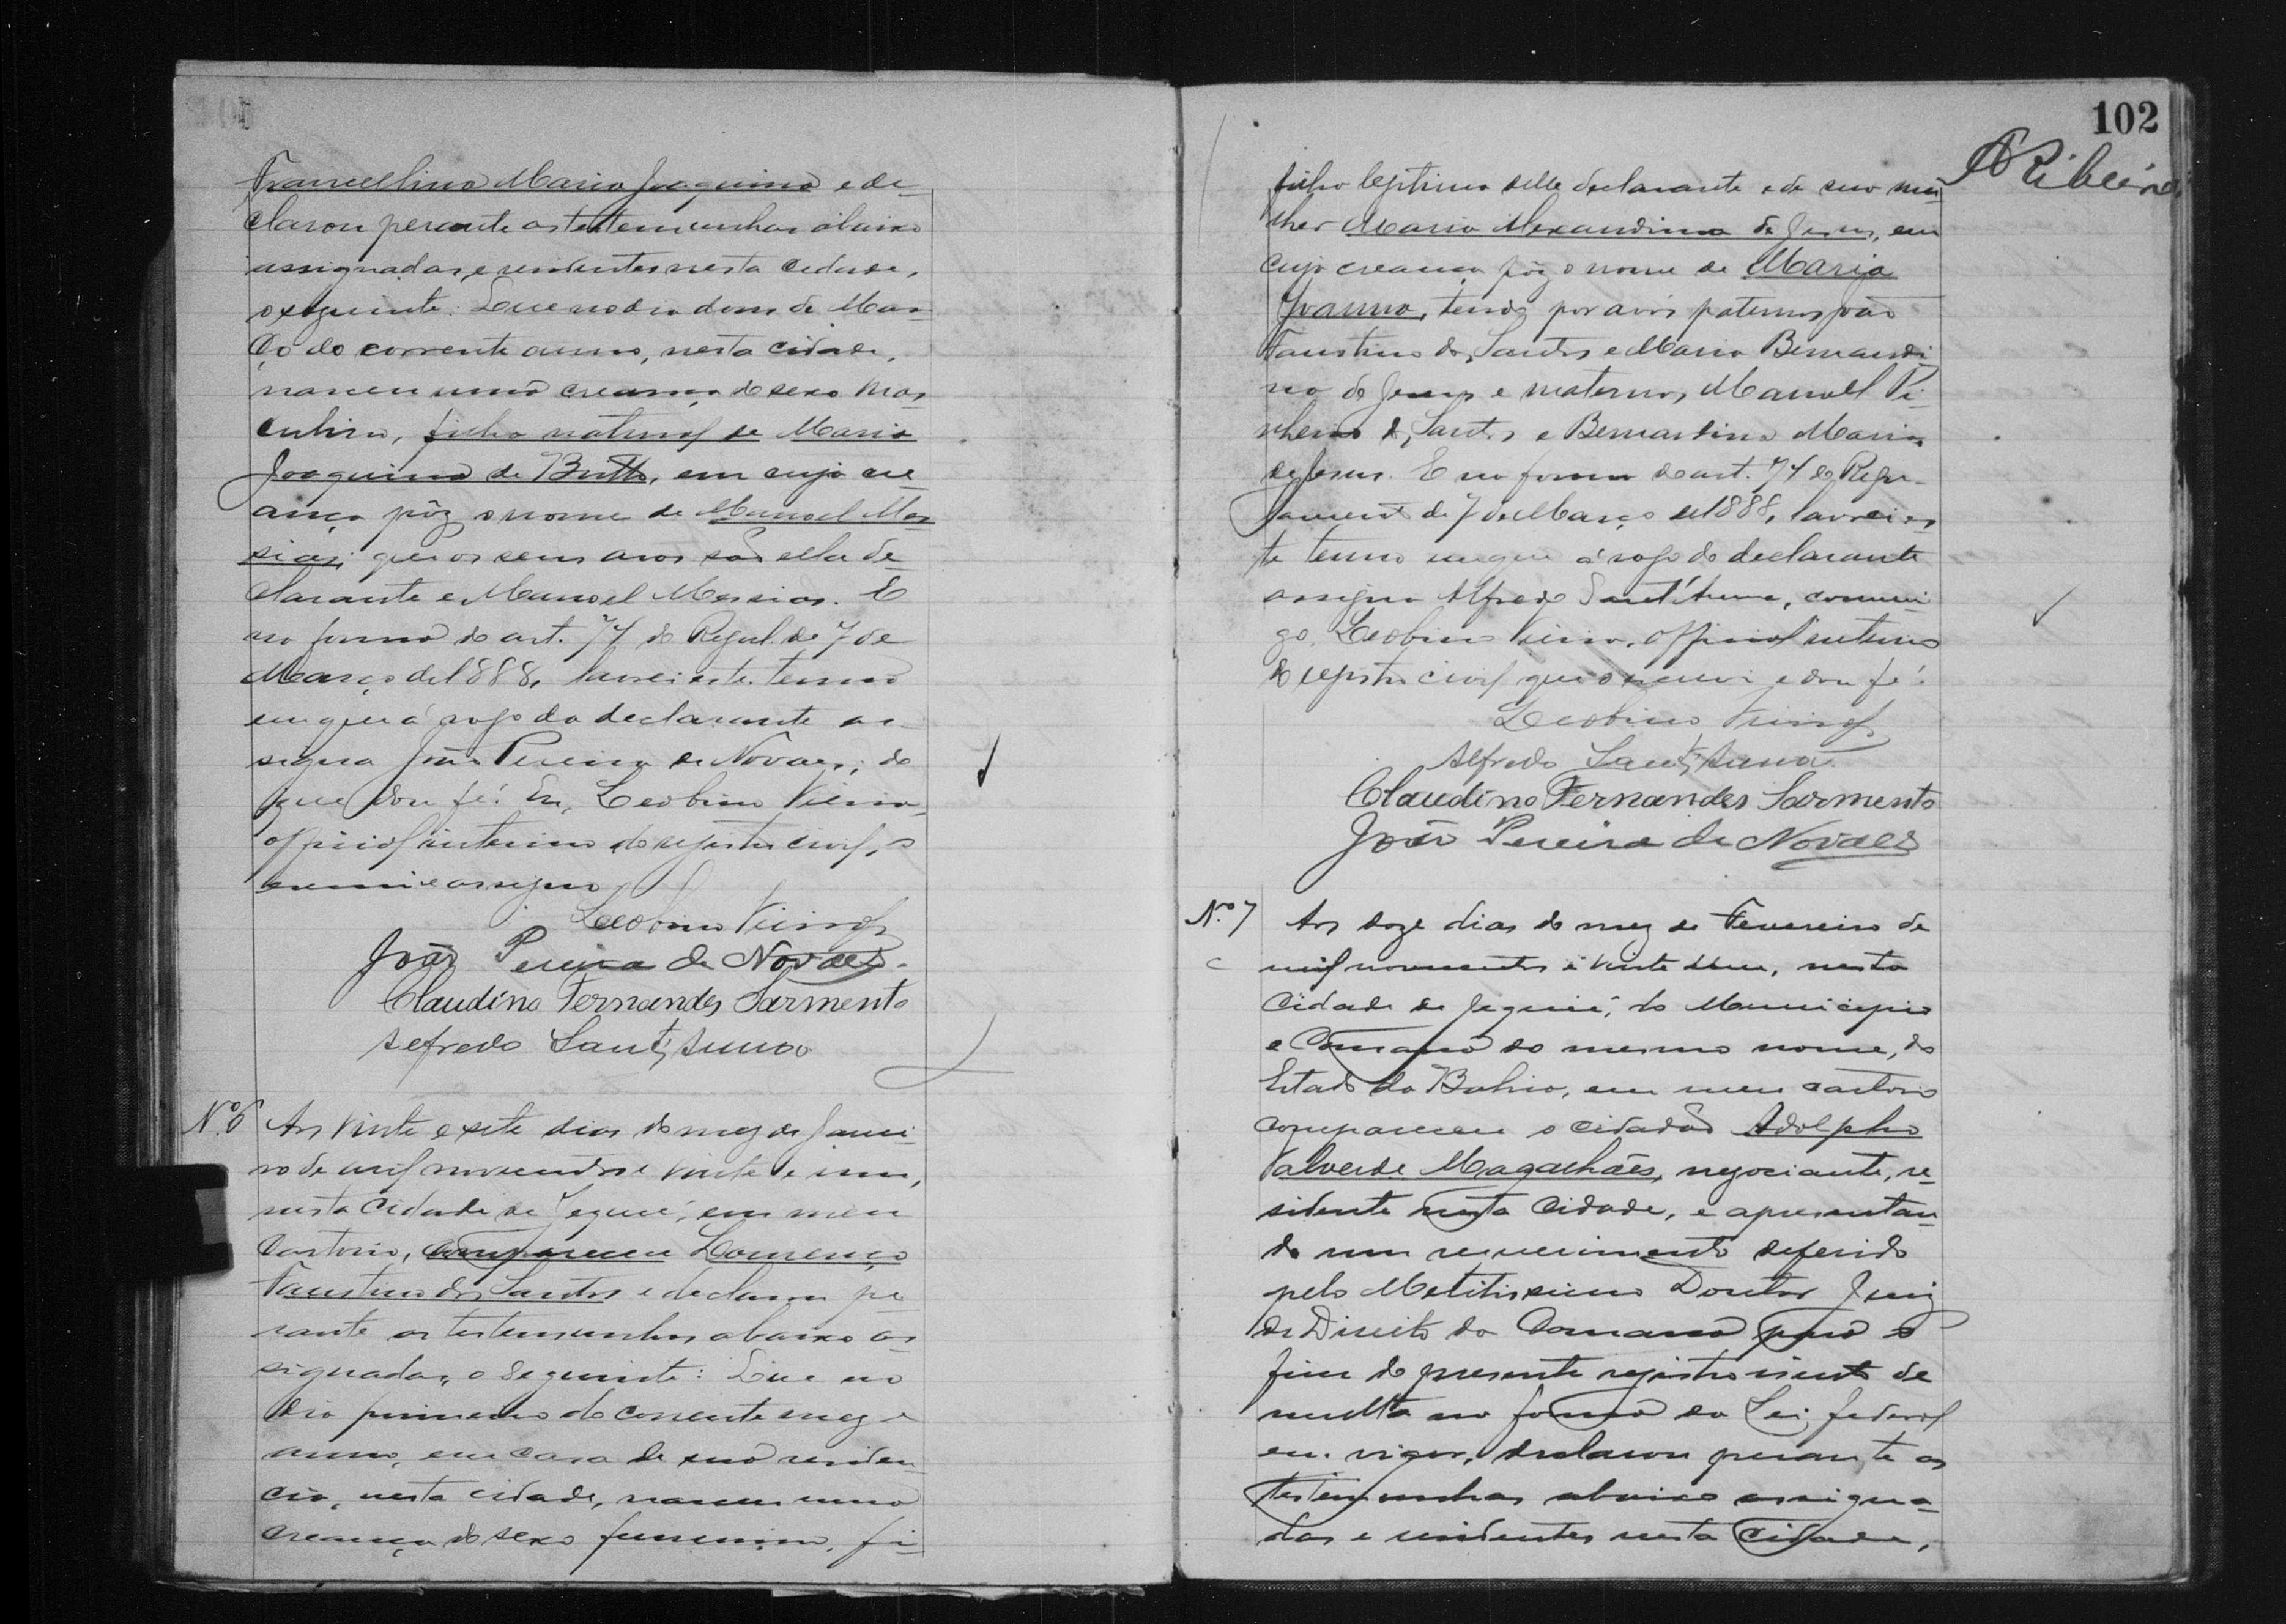 Francellina Maria Joaquina e de-
clarou perante as testemunhas abaixo
assignadas, e residentes nesta cidade,
o seguinte: Que no dia dous de Mar-
ço do corrente anno, nesta cidade,
nasceu uma creança do sexo mas-
culino, filho natural de Maria
Joaquina de Britto, em cuja cre-
ança pôz o nome de Manoel Mes-
sias; que os seus avos são ella de-
clarante e Manoel Messias. E
na forma do art. 74 do Regul. de 7 de
Março de 1888, lavrei este termo
em que á rogo da declarante as-
signa João Pereira de Novaes; do
que dou fé. Eu, Leobino Vieira
official interino do registro civil, o
escrevi e assigno
Leobino Vieira
João Pereira de Novaes.
Claudino Fernandes Sarmento
Alfredo Sant'Anna
Nº 6 Aos vinte e sete dias do mez de Janei-
ro de mil novecentos e vinte e um,
nesta Cidade de Jequié, em meu
Cartorio, compareceu Lourenço
Faustino dos Santos e declarou pe-
rante as testemunhas abaixo as-
signadas, o seguinte: Que no
dia primeiro do corrente mez e
anno, em casa de sua residen-
cia, nesta cidade, nasceu uma
creança do sexo feminino, fi-
102
ARibeiro
filha legitima delle declarante e de sua mu-
lher Maria Alexandrina de Jesus, em
cuja creança pôz o nome de Maria
Joanna, tendo por avós paternos João
Faustino dos Santos e Maria Bernardi-
na de Jesus e maternos, Manoel Pi-
nheiro dos Santos e Bernardina Maria
de Jesus. E na forma do art. 74 do Regu-
lamento de 7 de Março de 1888, lavrei es-
te termo em que á rogo do declarante
assigna Alfredo Sant'Anna, commi-
go, Leobino Vieira, official interino
do registro civil que o escrevi e dou fé.
Leobino Vieira
Alfredo Sant'Anna
Claudino Fernandes Sarmento
João Pereira de Novaes
Nº 7 Aos doze dias do mez de Fevereiro de
mil novecentos e vinte e um, nesta
Cidade de Jequié, do Municipio
e Comarca do mesmo nome, do
Estado da Bahia, em meu cartorio
compareceu o cidadão Adolpho
Valverde Magalhães, negociante, re-
sidente nesta Cidade, e apresentan-
do um requerimento deferido
pelo Metitissimo Doutor Juiz
de Direito da Comarca para o
fim do presente registro isento de
multa na forma da Lei federal
em vigor, declarou perante as
testemunhas abaixo assigna-
das e residentes nesta Cidade,